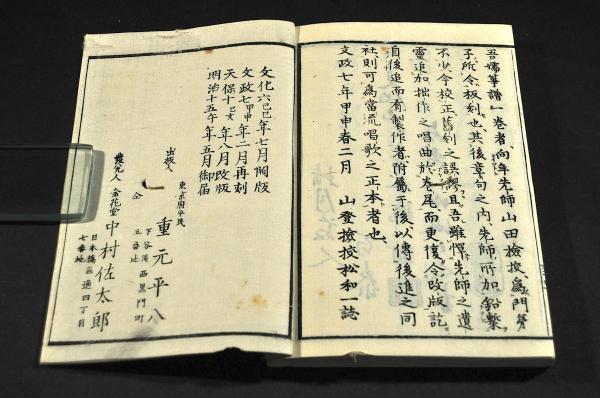 吾嬬箏譜一巻者向年先師山田檢挍為門弟
子所令板刻也其後章句之内先師所加鉛槧
不少今校正舊刻之誤謬且吾雖憚先師之遺
霊追加拙作之唱曲於巻尾而更復令改版訖
自後追而有製作者附属于後以傳後進之同
社則可為當流唱歌之正本者也
文政七年甲申春二月 山登檢挍松和一誌
文化六己巳年七月開版
文政七甲申年二月再刻
天保十己亥年八月改版
明治十五午年五月御届
出板人 東京府平民 重元平八
下谷區西黒門町
五番地
發兌人 金花堂 中村佐太郎
日本橋區通四丁目
七番地